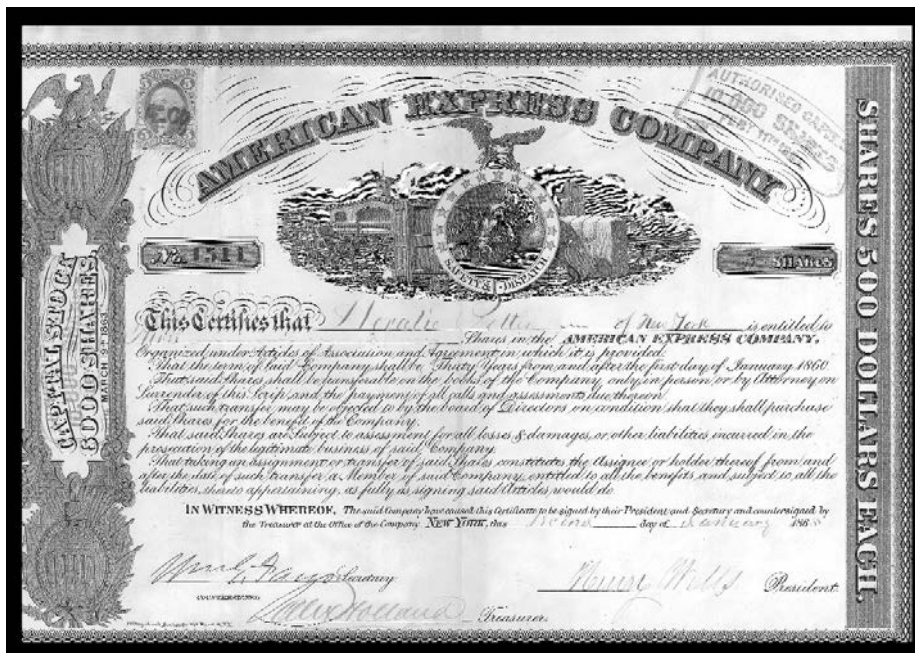 AMERICAN EXPRESS COMPANY
AUTHORISED CAPITAL
10,000 SHARES
No. 1511
SHARES
SAFETY & DISPATCH
CAPITAL STOCK
6000 SHARES
MARCH 1ST 1863
SHARES 500 DOLLARS EACH
This Certifies that Horatio of New York is entitled to
Shares in the AMERICAN EXPRESS COMPANY,
Organized under Articles of Association and Agreement in which it is provided:
That the term of said Company shall be Thirty Years from and after the first day of January 1860.
That said Shares shall be transferable on the books of the Company, only in person or by Attorney on
Surrender of this Scrip, and the payment of all calls and assessments due thereon.
That such transfer may be objected to by the board of Directors on condition that they shall purchase
said Shares for the benefit of the Company.
That said Shares are Subject to assessment for all losses & damages, or other liabilities incurred in the
prosecution of the legitimate business of said Company.
That taking an assignment or transfer of said Shares constitutes the Assignee or holder thereof from and
after the date of such transfer a Member of said Company, entitled to all the benefits, and subject to all the
liabilities, thereto appertaining, as fully as signing said Articles would do.
IN WITNESS WHEREOF, The said Company have caused this Certificate to be signed by their President and Secretary and countersigned by
the Treasurer at the Office of the Company NEW YORK, this Second day of January 186
Wm. G. Fargo Secretary
Henry Wells President.
COUNTERSIGNED
Alex Holland Treasurer.